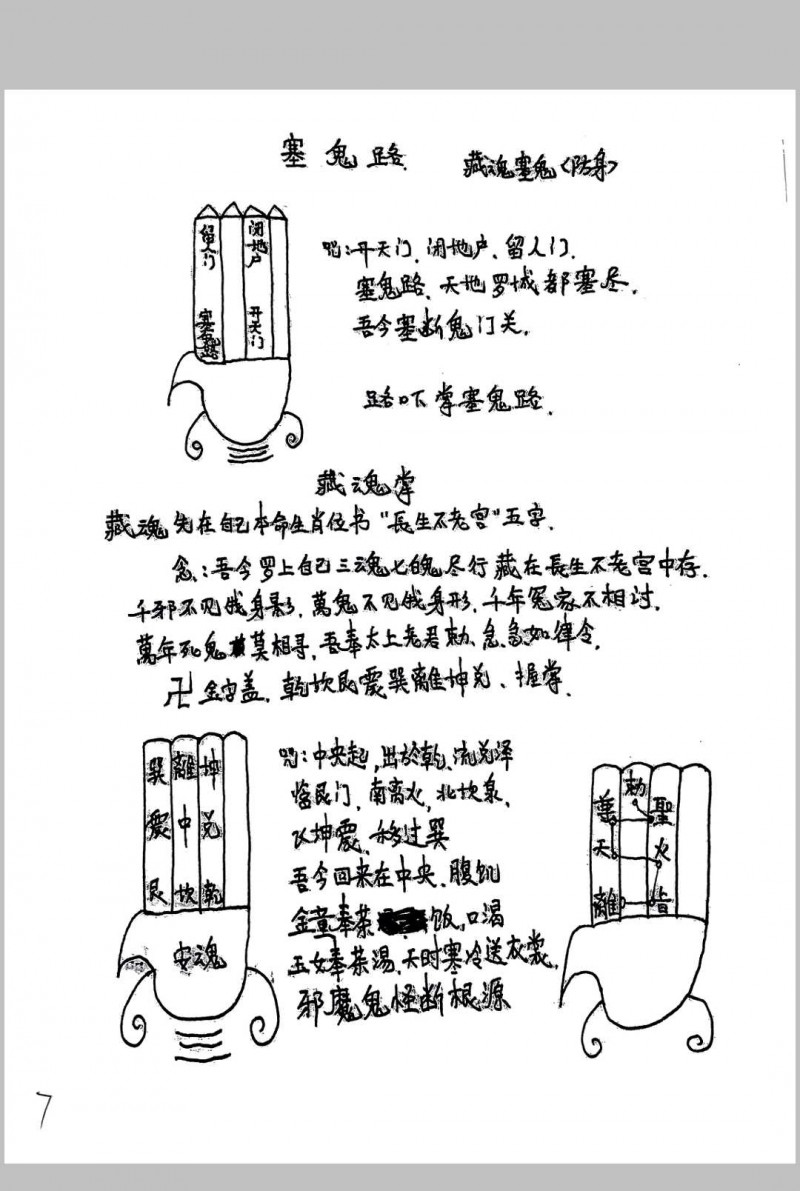 塞鬼路.
藏魂塞鬼<防身>
留人门
塞鬼路
闭地户
开天门
咒:开天门.闭地户.留人门.
塞鬼路.天地罗城都塞尽.
吾今塞断鬼门关.
路吓掌塞鬼路.
藏魂掌
藏魂先在自己本命生肖位书"長生不老宫"五字.
念:吾今罗上自己三魂七魄尽行藏在長生不老宫中存.
千邪不见俄身影,萬鬼不见俄身形,千年冤家不相讨.
萬年死鬼莫相寻,吾奉太上老君勅.急急如律令.
卍金字盖,乾坎艮震巽離坤兑、握掌.
巽離坤
震中兑
艮坎乾
安魂
咒:中央起,出於乾、流兑泽
艮门,南离火,北坎泉,
坤震、移过巽
吾今回来在中央、腹饥
金童奉茶饭,口渴
玉女奉茶湯、天时寒冷送衣裳,
邪魔鬼怪断根源
勅
聖
天火
離
7